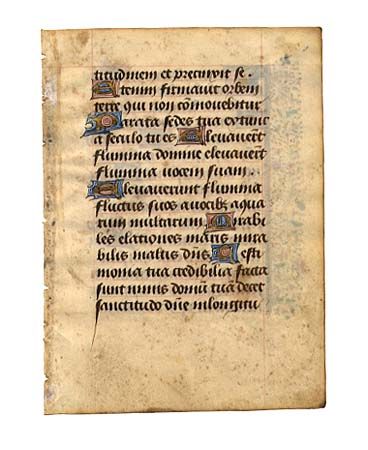 titudinem et precinxit se.
Etenim firmavit orbem
terre qui non cōmovebitur
Parata sedes tua ex tunc
a seculo tu es Elevaverūt
flumina domine elevaverūt
flumina vocem suam.
Elevaverunt flumina
fluctus suos a vocibꝫ aqua
rum multarum Mirabi
les elationes maris mira
bilis in altis dn̄s Testi
monia tua credibilia facta
sunt nimis domū tuā decet
sanctitudo dn̄e in longitu